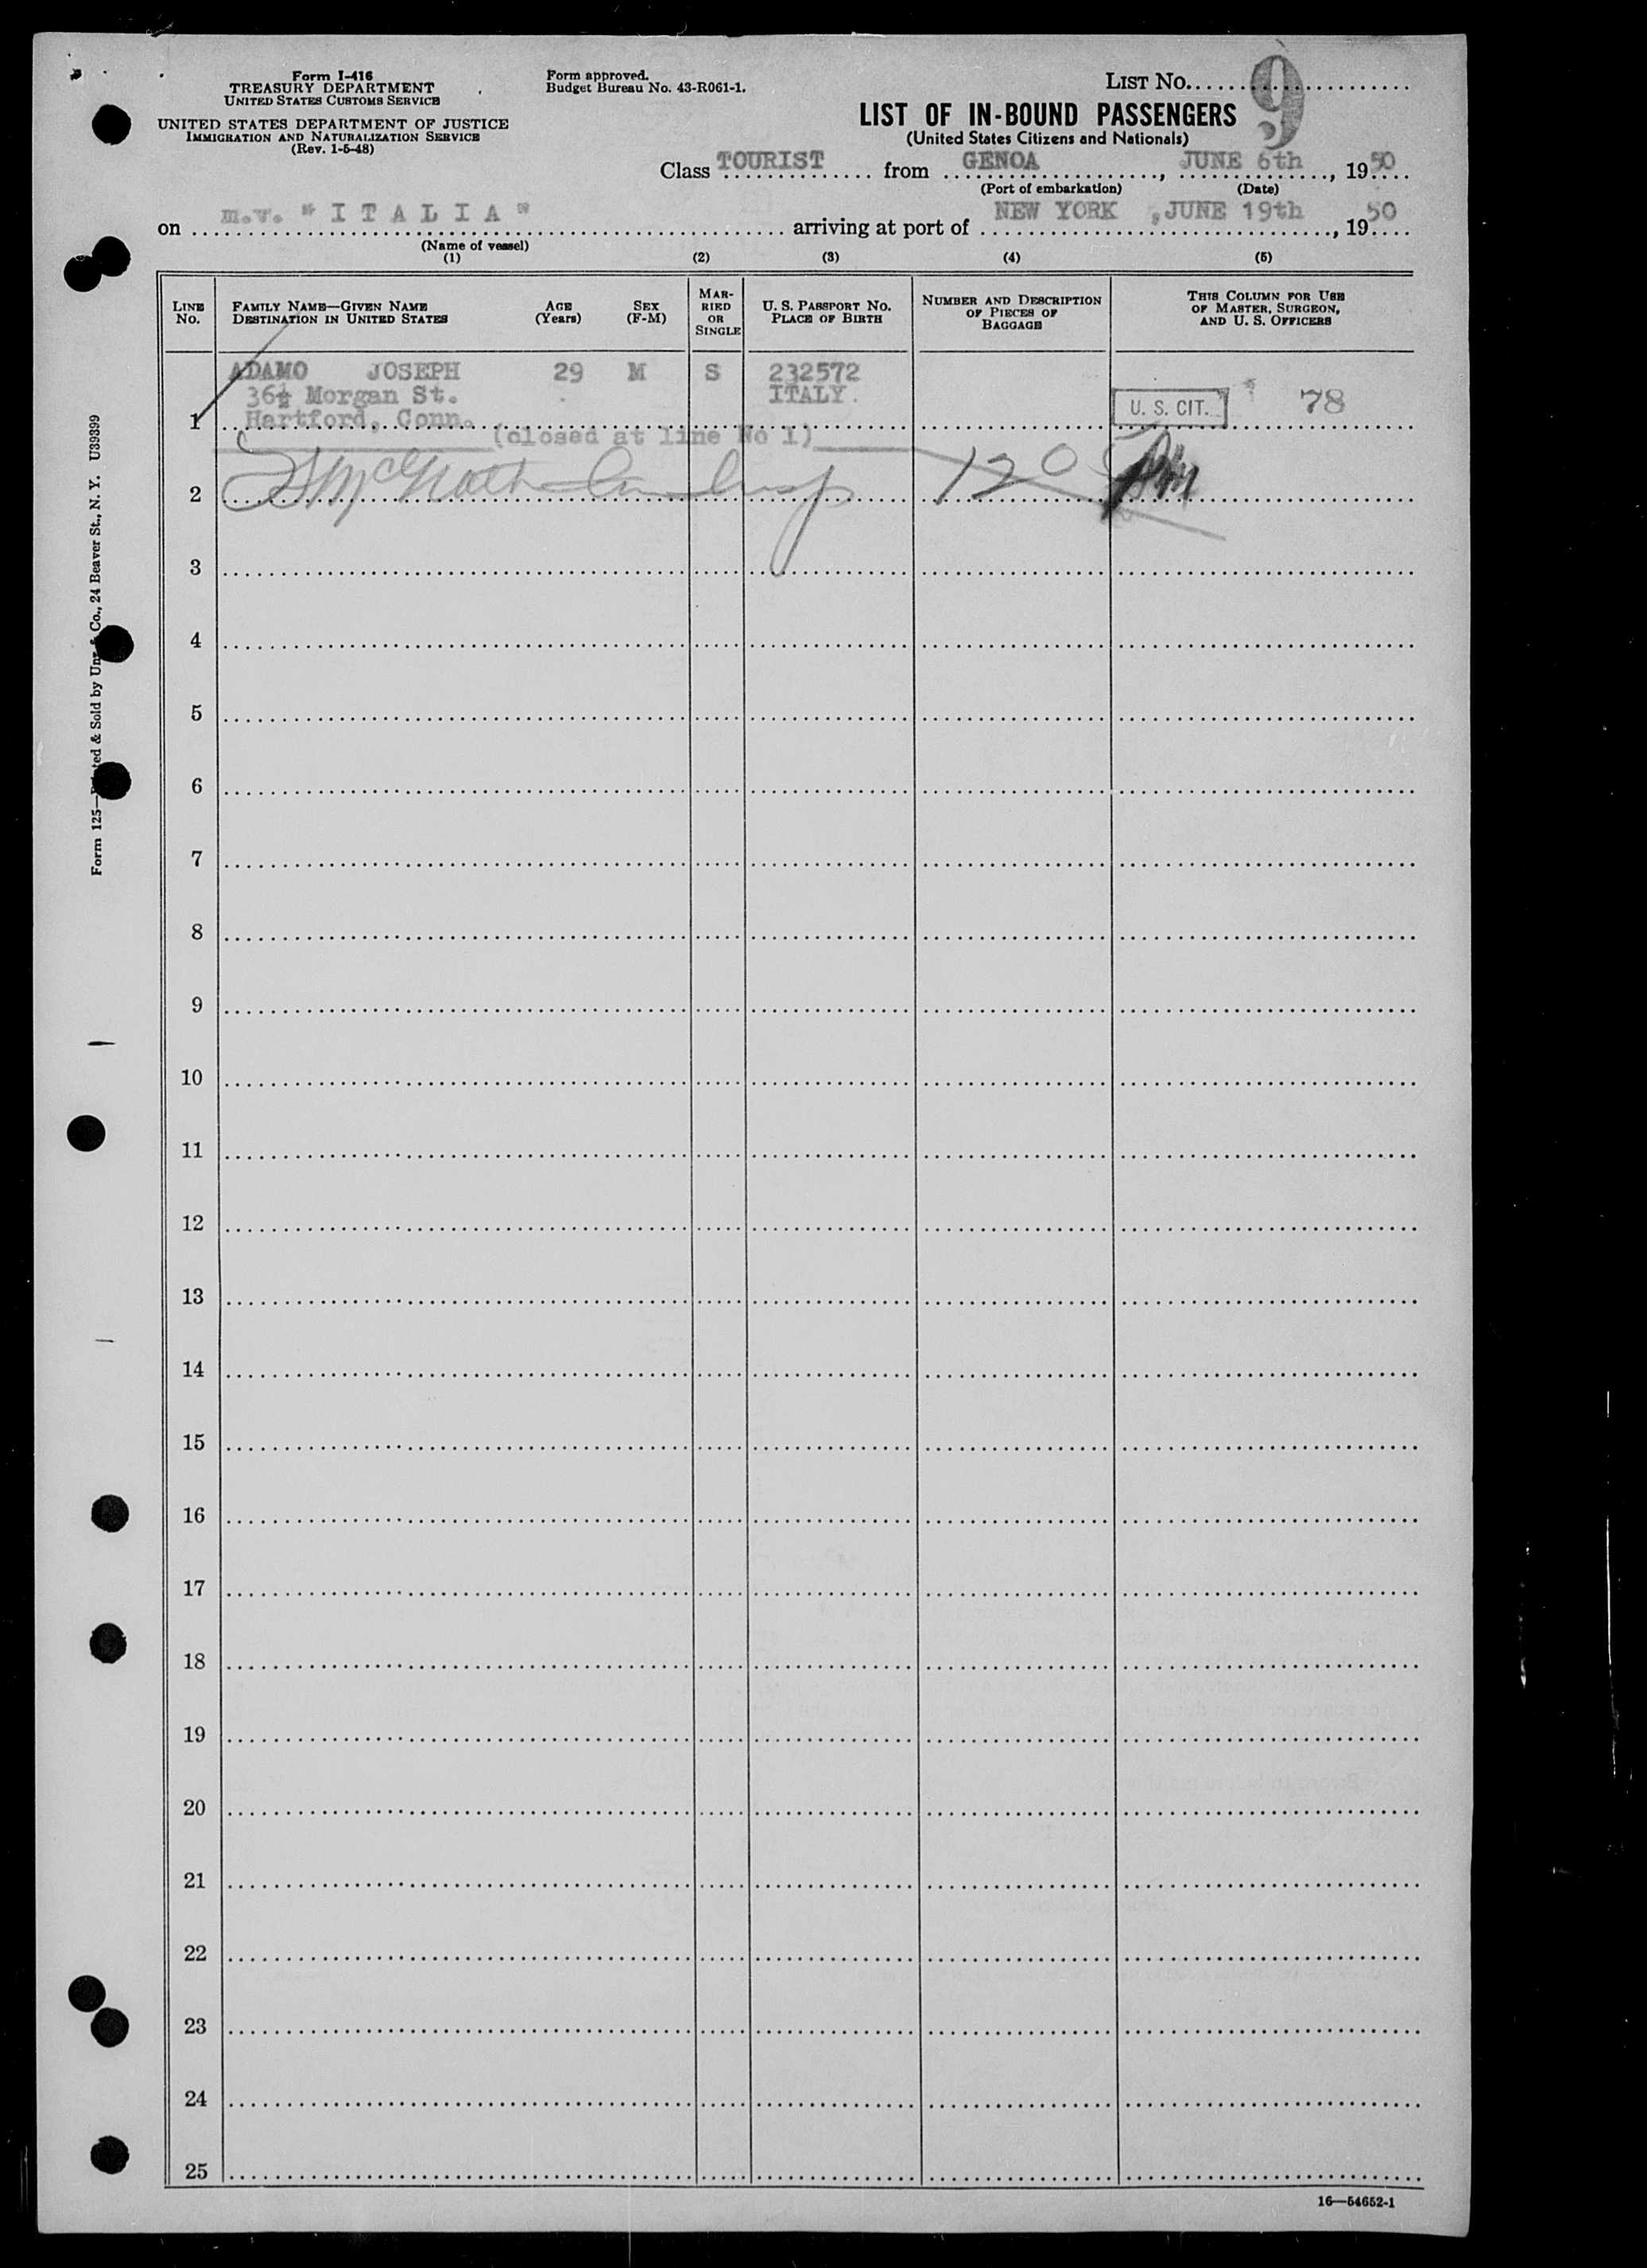 Form I-416
TREASURY DEPARTMENT
UNITED STATES CUSTOMS SERVICE
UNITED STATES DEPARTMENT OF JUSTICE
IMMIGRATION AND NATURALIZATION SERVICE
(Rev. 1-5-48)
Form approved.
Budget Bureau No. 43-R061-1.
LIST No. 9
LIST OF IN-BOUND PASSENGERS
(United States Citizens and Nationals)
Class TOURIST from GENOA, JUNE 6th, 1950
(Port of embarkation) (Date)
on m.v. "ITALIA" arriving at port of NEW YORK, JUNE 19th, 1950
(Name of vessel)
(1) (2) (3) (4) (5)
LINE No.
FAMILY NAME—GIVEN NAME
DESTINATION IN UNITED STATES
AGE (Years)
SEX (F-M)
MARRIED OR SINGLE
U. S. PASSPORT No.
PLACE OF BIRTH
NUMBER AND DESCRIPTION OF PIECES OF BAGGAGE
THIS COLUMN FOR USE OF MASTER, SURGEON, AND U. S. OFFICERS
ADAMO JOSEPH 29 M S 232572
36½ Morgan St. ITALY
U. S. CIT. 78
1 Hartford, Conn.
(closed at line No 1)
2 120
3
4
5
6
7
8
9
10
11
12
13
14
15
16
17
18
19
20
21
22
23
24
25
16—54652-1
Form 125—Printed & Sold by Unz & Co., 24 Beaver St., N. Y. U39399